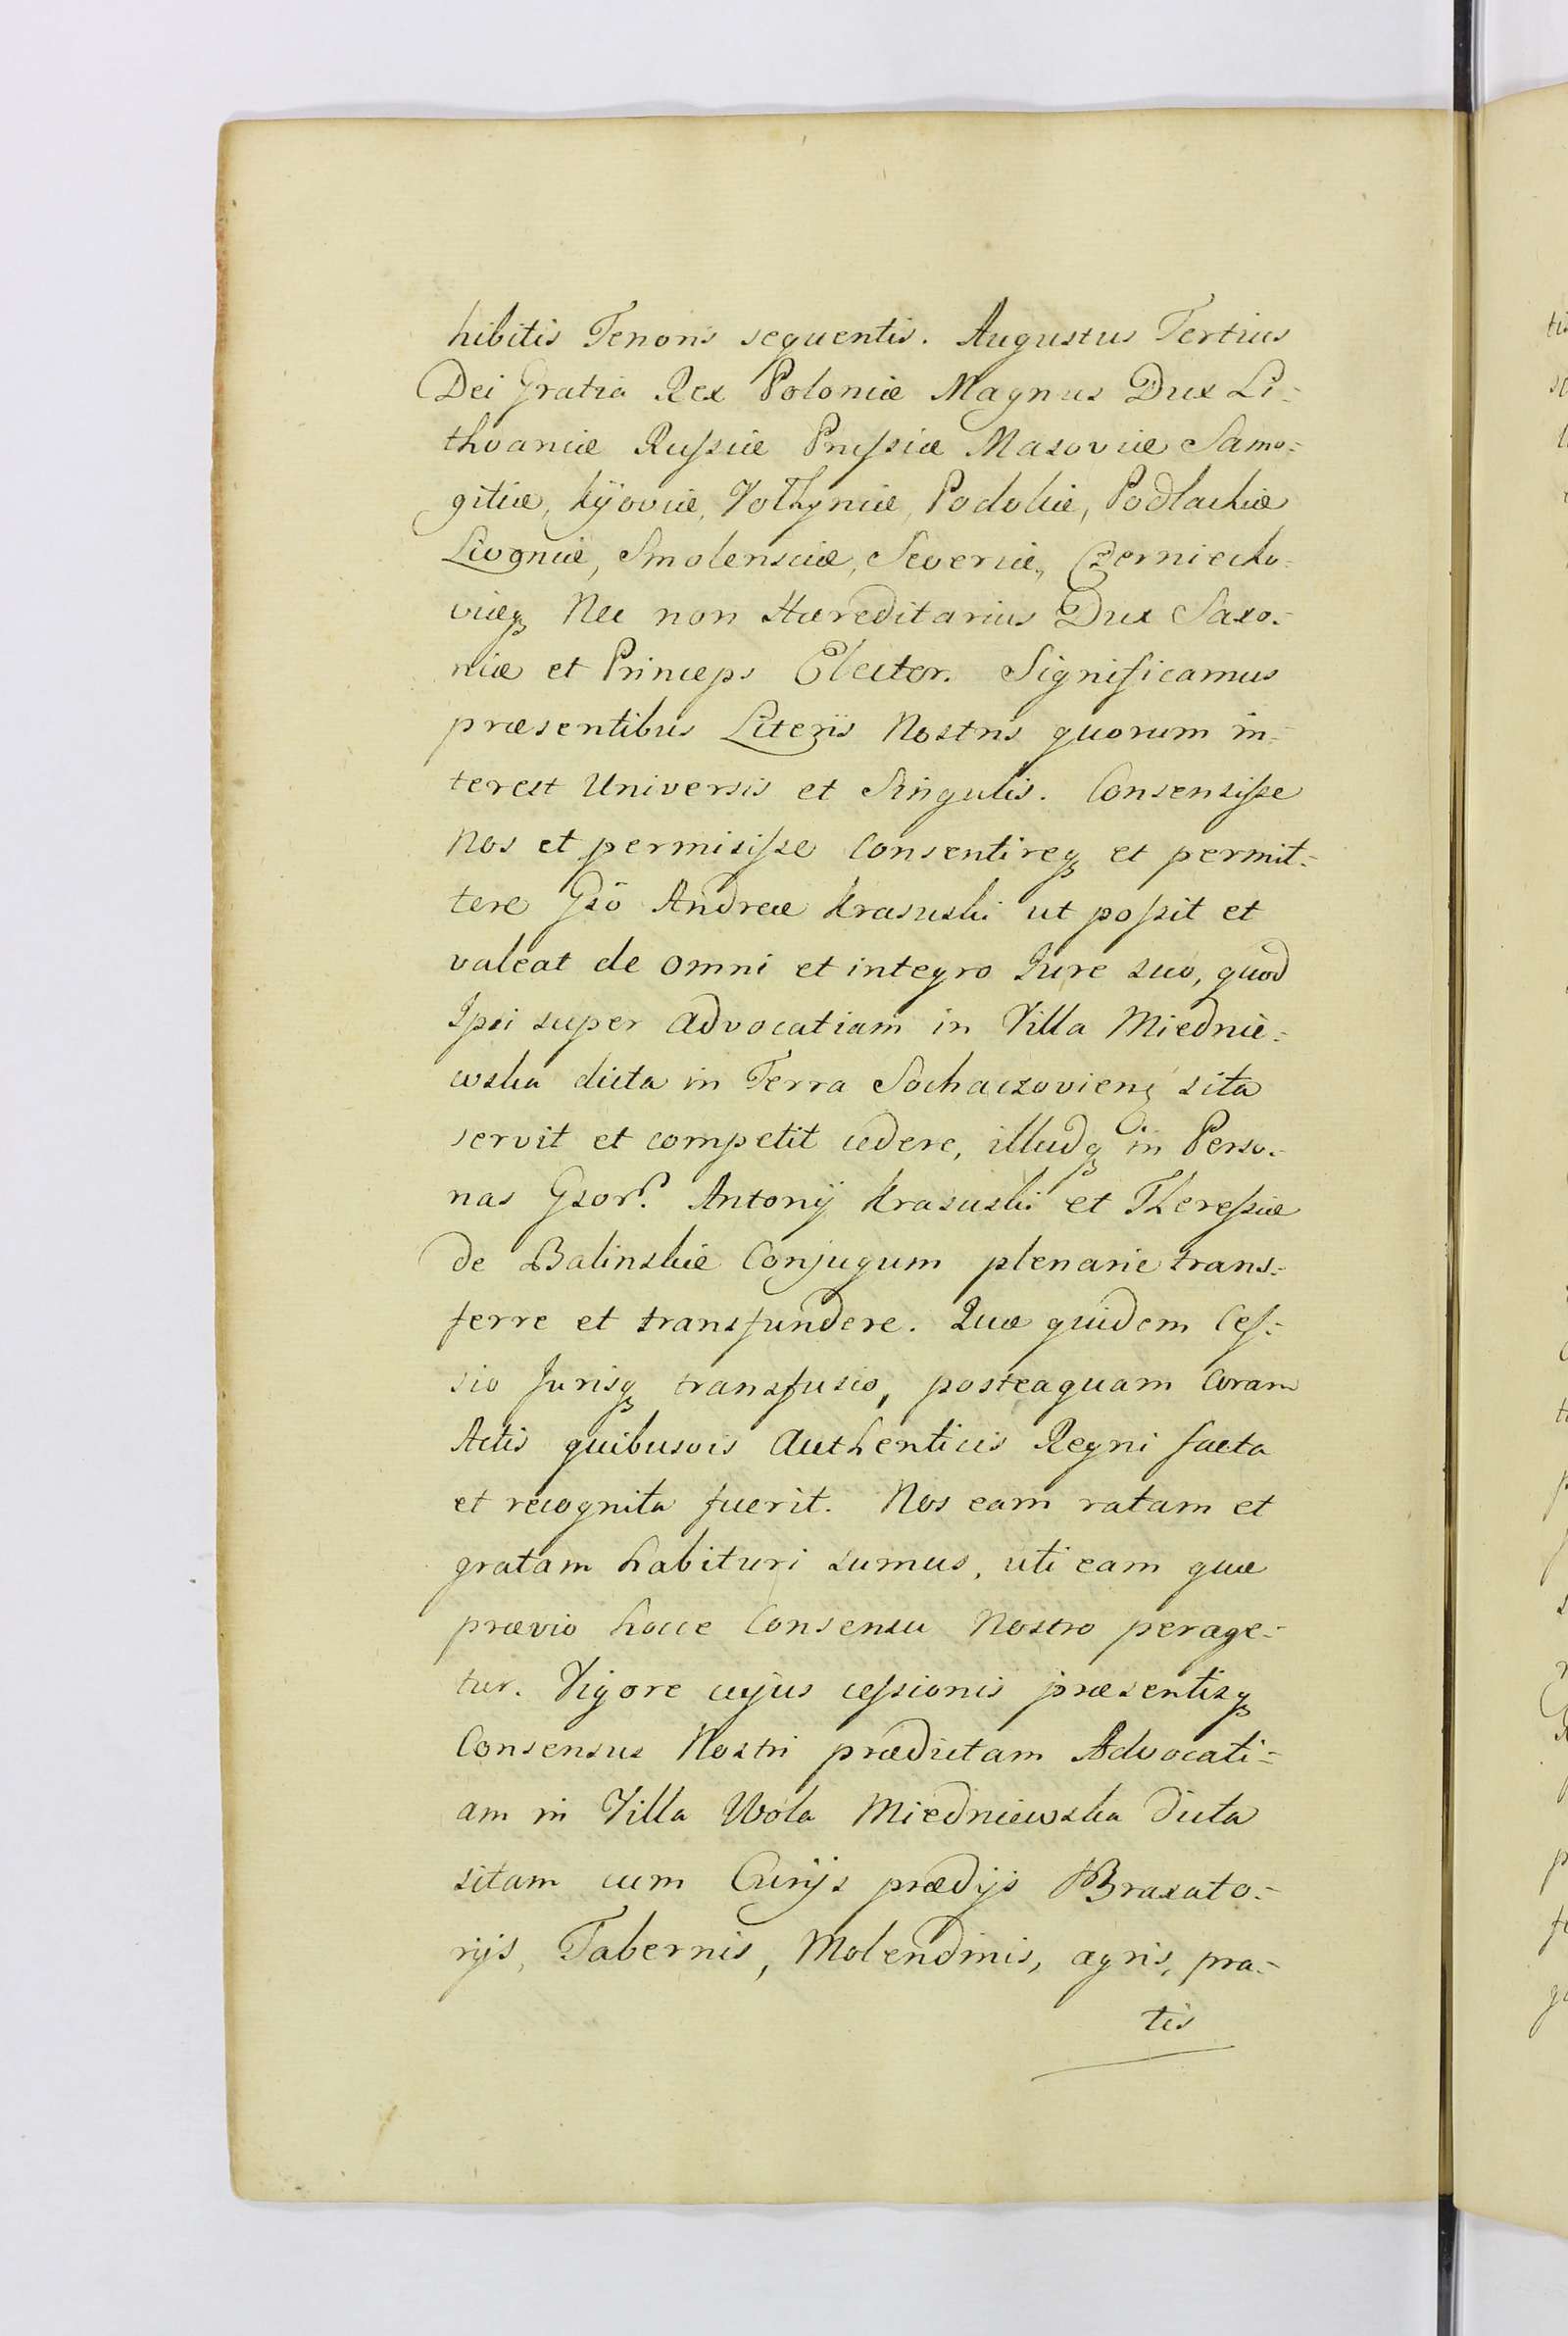 hibitis Tenoris sequentis. Augustus Tertius
Dei Gratia Rex Poloniæ Magnus Dux Li-
thvaniæ Russiæ Prussiæ Masoviæ Samo-
gitiæ, Kijoviæ, Volhyniæ, Podoliæ, Podlachiæ
Livoniæ, Smolensciæ, Severiæ, Czerniecho-
viæq Nec non Hæreditarius Dux Saxo-
niæ et Princeps Elector. Significamus
præsentibus Literis Nostris quorum in-
terest Universis et Singulis. Consensisse
Nos et permisisse Consentireq et permit-
tere Gsō Andreæ Krasuski ut possit et
valeat de omni et integro Jure suo, quod
Ipsi super Advocatiam in Villa Miednie-
wska dicta in Terra Sochaczovienś sita
servit et competit cedere, illudq in Perso-
nas Gsor. Antonij Krasuski et Theressiæ
de Balinskie Conjugum plenarie trans-
ferre et transfundere. Quæ quidem Ces-
sio Jurisq transfusio, posteaquam Coram
Actis quibusvis Authenticis Regni facta
et recognita fuerit. Nos eam ratam et
gratam habituri sumus, uti eam quæ
prævio hocce Consensu Nostro perage-
tur. Vigore cujus cessionis præsentisq
Consensus Nostri prædictam Advocati-
am in Villa Wola Miedniewska dicta
sitam cum Curijs prædijs Braxato-
rijs, Tabernis, Molendinis, agris, pra-
tis